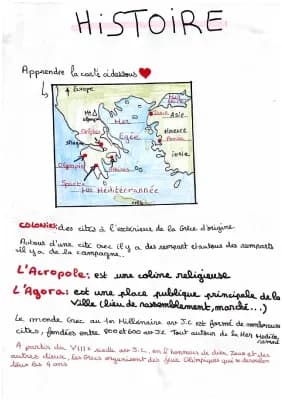 HISTOIRE
Apprendre la carte ci dessous
Europe
Asie
Mer
Egée
Olympie
Sparte
Mer Méditerranée
COLONIES: des cités à l'extérieur de la Grèce d'origine.
Autour d'une cité avec il y a des rempart et autour des remparts
il y a de la campagne.
L'Acropole: est une coline religieuse
L'Agora: est une place publique principale de la
ville (lieu de rassemblement, marché...)
Le monde Grec au 1er Millénaire av J.C est formé de nombreuses
cités, fondées entre 800 et 600 av J.C Tout autour de la Mer
A partir du VIIIe siècle av J.C., en l'honneur de dieu Zeus et des
autres dieux, les Grecs organisent des jeux Olympiques qui se déroulent
tous les 4 ans